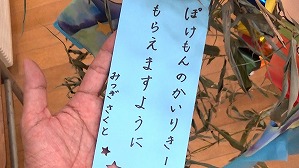 ぽけもんのかいりきー
もらえますように
みつざきくと